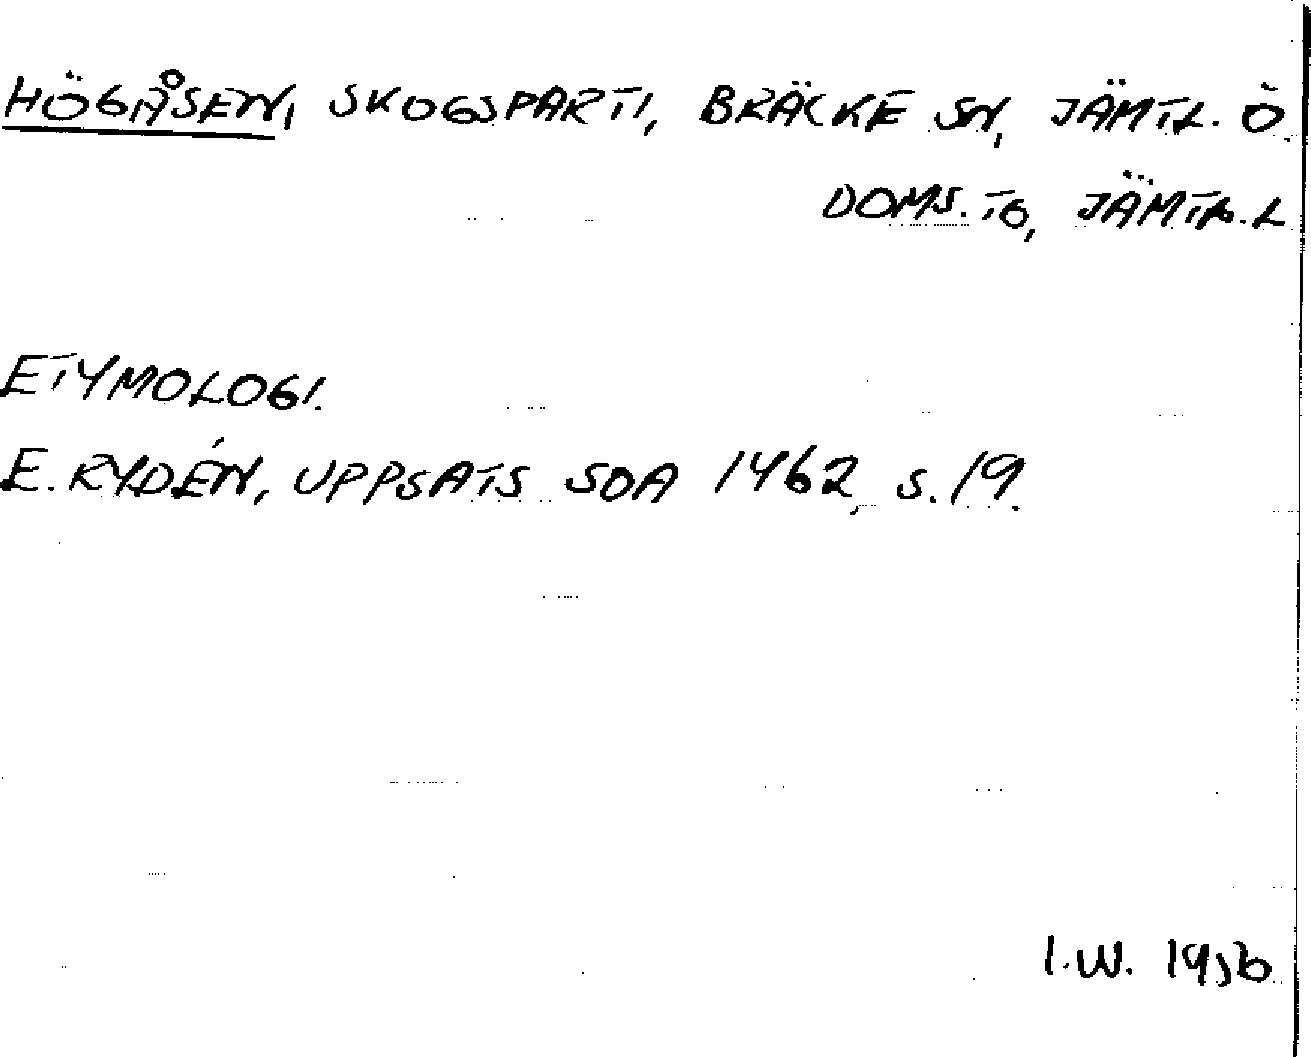 HÖGÅSEN, SKOGSPARTI, BRÄCKE SN, JÄMTL. Ö.
DOMS. TG, JÄMTL. L
ETYMOLOGI.
E. RYDÉN, UPPSATS SOA 1462, S. 19.
I.W.